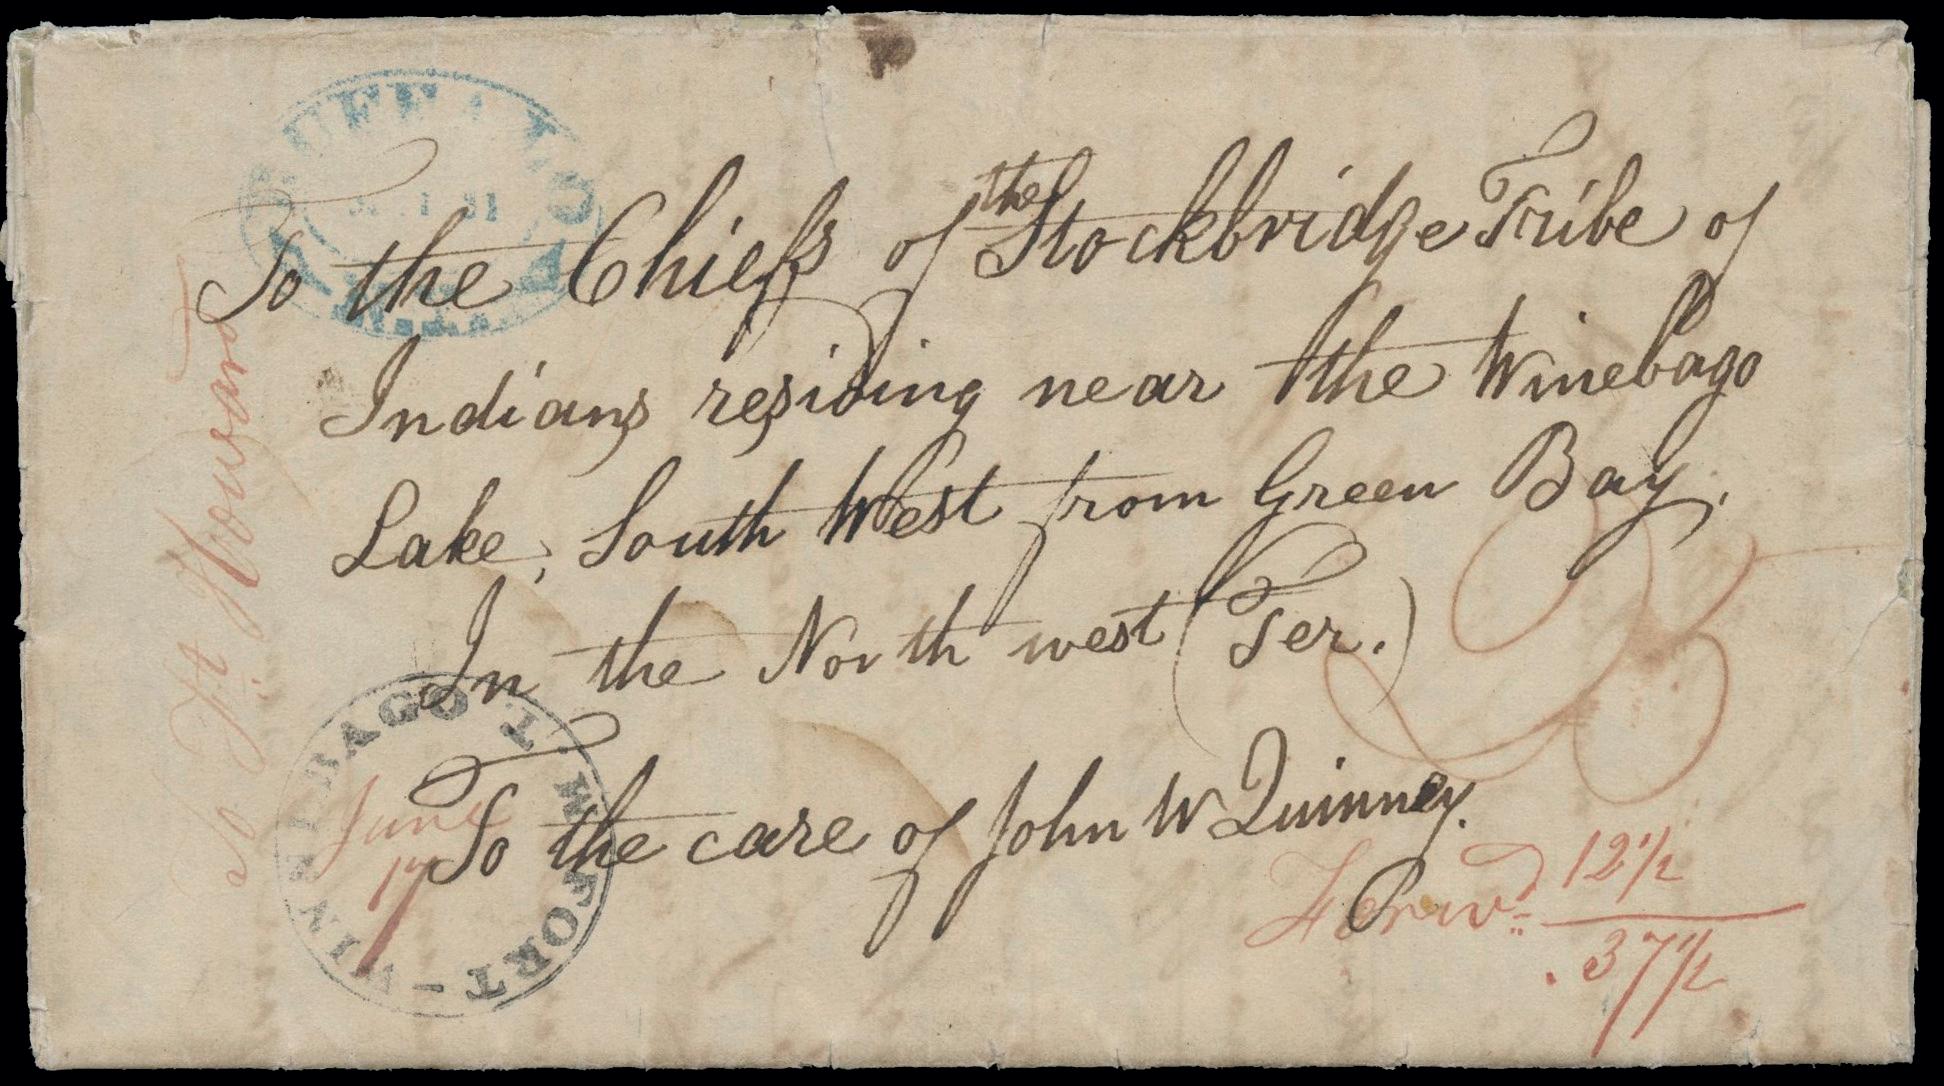 BUFFALO
To the Chiefs of the Stockbridge Tribe of
Indians residing near the Winebago
Lake, South West from Green Bay,
In the North west (Ter.)
To the care of John W Quinney.
To Ft. Howard
FORT-WINNEBAGO
June
17
Forwd. 12 1/2
37 1/2